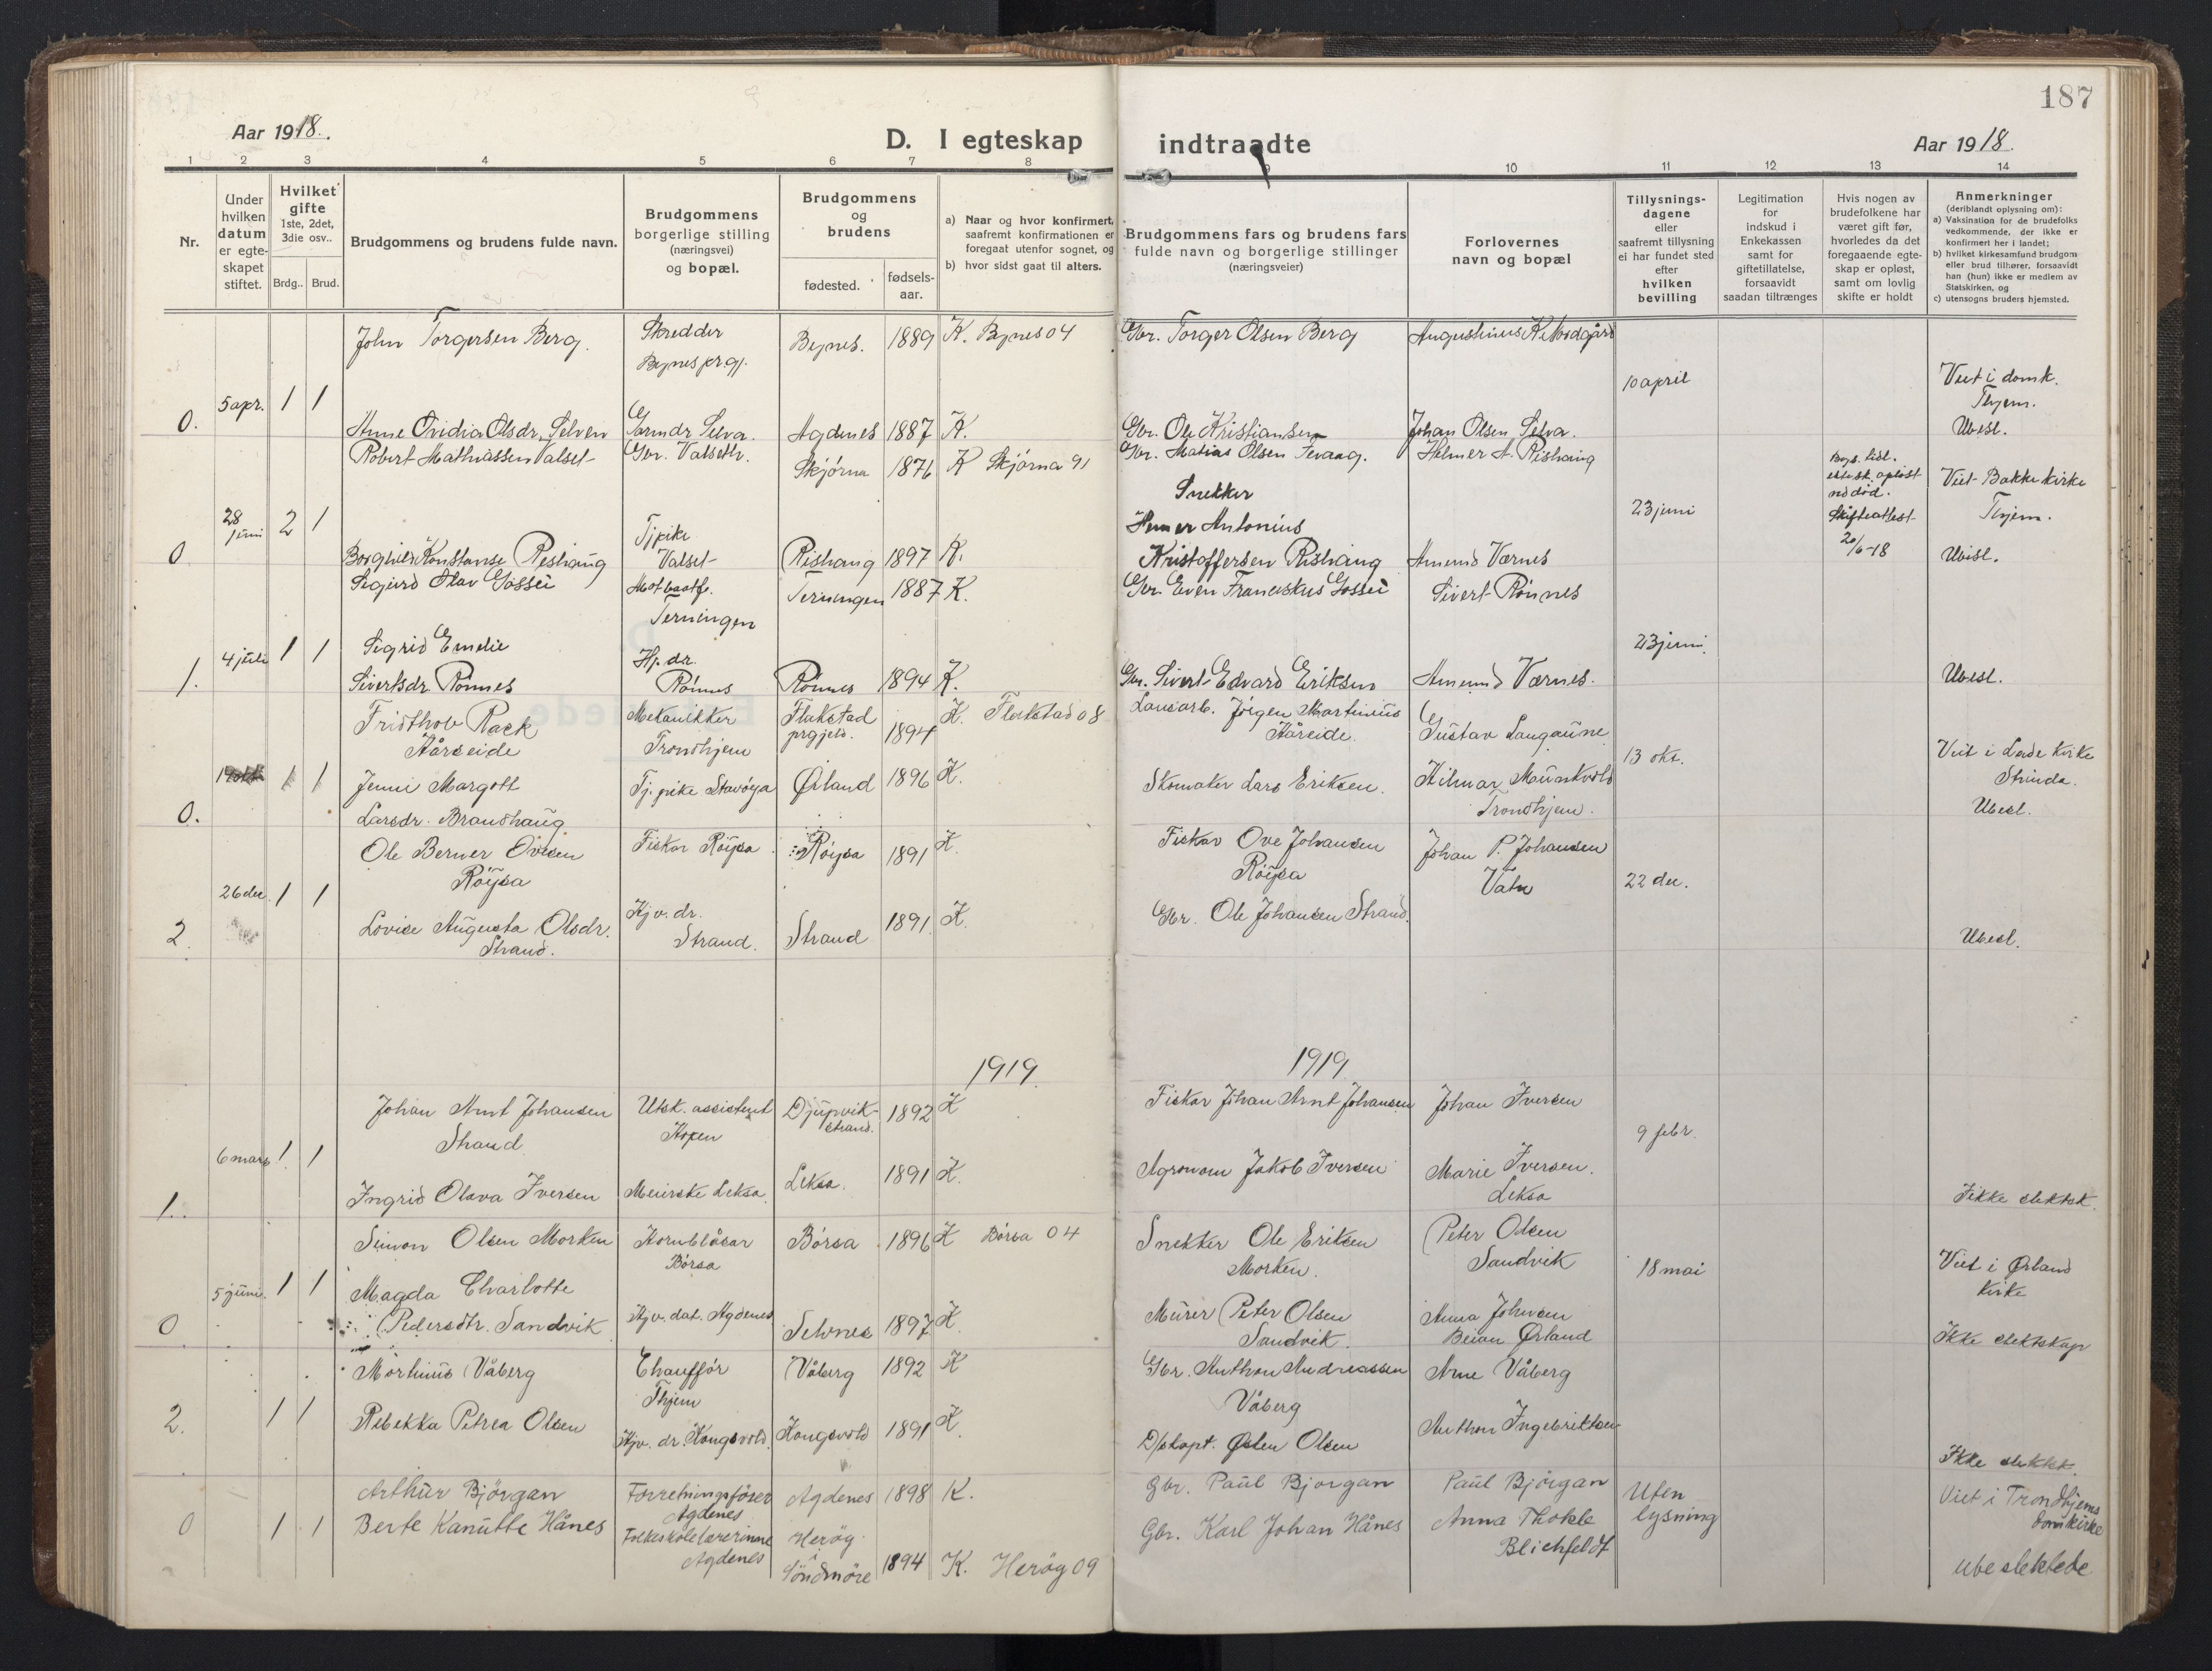 187
Aar 1918.
D. I egteskap indtraadte
Aar 1918.
1 2 3 4 5 6 7 8 10 11 12 13 14
Nr.
Under hvilken datum er egte-skapet stiftet.
Hvilket gifte 1ste, 2det, 3die osv..
Brdg.. Brud.
Brudgommens og brudens fulde navn.
Brudgommens borgerlige stilling (næringsvei) og bopæl.
Brudgommens og brudens
fødested. fødsels-aar.
a) Naar og hvor konfirmert, saafremt konfirmationen er foregaat utenfor sognet, og
b) hvor sidst gaat til alters.
Brudgommens fars og brudens fars fulde navn og borgerlige stillinger (næringsveier)
Forlovernes navn og bopæl
Tillysnings-dagene eller saafremt tillysning ei har fundet sted efter hvilken bevilling
Legitimation for indskud i Enkekassen samt for giftetillatelse, forsaavidt saadan tiltrænges
Hvis nogen av brudefolkene har været gift før, hvorledes da det foregaaende egte-skap er opløst, samt om lovlig skifte er holdt
Anmerkninger (deriblandt oplysning om):
a) Vaksination for de brudefolks vedkommende, der ikke er konfirmert her i landet;
b) hvilket kirkesamfund brudgom eller brud tilhører, forsaavidt han (hun) ikke er medlem av Statskirken, og
c) utensogns bruders hjemsted.
John Torgersen Berg. Skredder Bynes. 1889 K. Bynes 04 Gbr. Torger Olsen Berg
Bynes prgj.
10 april Viet i domk. Thjem.
0. 5 apr. 1 1
Anne Ovidia Olsdr. Selven Garmdr Selva. Agdenes 1887 K. Gbr. Ole Kristiansen Johan Olsen Selva. Ubesl.
Robert Mathiassen Valset Gbr. Skjörna 1876 K Skjörna 91 Gbr. Matias Olsen Helmer A. Rishaug
Snekker
Viet Bakke kirke Thjem.
0 28 juni 2 1 23 juni Skifteattest 20/6-18
Borghild Konstanse Rishaug Tjpike Valset Rishaug 1897 K. Antonius Kristoffersen Rishaug Amund Værnes Ubesl.
Sigurd Olav Gössei Terningen Terningen 1887 K. Gbr. Even Franciskus Gössei Sivert Rönnes
1. 4 juli 1 1 23 juni.
Sigrid Emelie Sivertsdr. Rönnes Hj. dr. Rönnes Rönnes 1894 K. Gbr. Sivert Edvard Eriksen Amund Værnes. Ubesl.
Fridthov Rack Hårseide Mekanikker Trondhjem Flakstad prgjeld. 1894 K. Flakstad 08 Jörgen Martinius Håreide. Gustav Langaune
13 okt. Viet i Lade kirke Strinda.
0. 1 1
Jenni Margott Larsdr. Brandhaug Tj. pike Storöya Ørland 1896 K. Skomaker Lars Eriksen. Hilmar Munkvold Trondhjem. Ubesl.
Ole Berner Ovesen Röysa Fisker Röysa Röysa 1891 K. Fisker Ove Johansen Röysa Johan P. Johansen Vatn
2. 26 dec. 1 1 22 dec.
Lovise Augusta Olsdr. Strand. Hjv. dr. Strand. Strand 1891 K. Gbr. Ole Johansen Strand. Ubesl.
1919. 1919.
Johan Arnt Johansen Strand. Utsk. assistent Hopen Djupvik-strand. 1892 K Fisker Johan Arnt Johansen Johan Iversen
1. 6 mars 1 1 9 febr.
Ingrid Olava Iversen Meierske Leksa Leksa. 1891 K. Agronom Jakob Iversen Marie Iversen. Leksa Ikke slektsk.
Simon Olsen Morken Hornblåser Börsa Börsa 1896 K Börsa 04 Snekker Ole Eriksen Morken. Peter Olsen Sandvik
0 5 juni. 1 1 18 mai Viet i Ørland kirke
Magda Charlotte Pedersdtr. Sandvik Hjv. dat. Agdenes Selvnes 1897 K. Murer Peter Olsen Sandvik. Anna Johnsen Beian Ørland Ikke slektskap
Martinus Våberg Chauffør Thjem Våberg 1892 K Gbr. Anthon Andreassen Våberg Arne Våberg
2. 1 1
Rebekka Petrea Olsen Hjv. dr. Kongsvold. Kongsvold 1891 K. D/skapt. Østen Olsen Anthon Ingebriktsen Ikke slektsk.
Arthur Björgan Forretningsförer Agdenes Agdenes 1898 K. Gbr. Paul Bjorgan Paul Björgan Uten lysning Viet i Trondhjems domkirke
0 1 1
Berte Kanutte Hånes Folkeskolelærerinne Agdenes Heröy i Söndmöre 1894 K. Heröy 09 Gbr. Karl Johan Hånes Anna Thokle Blichfeldt ubeslektede